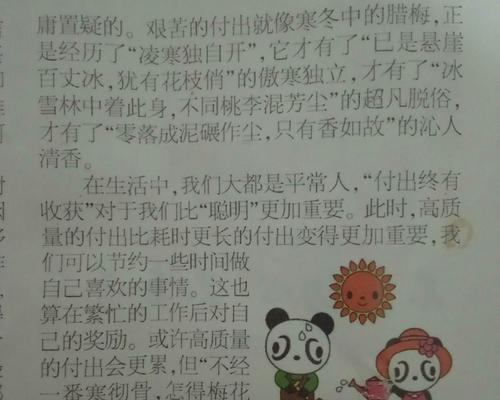 庸置疑的。艰苦的付出就像寒冬中的腊梅，正
是经历了“凌寒独自开”，它才有了“已是悬崖
百丈冰，犹有花枝俏”的傲寒独立，才有了“冰
雪林中着此身，不同桃李混芳尘”的超凡脱俗，
才有了“零落成泥碾作尘，只有香如故”的沁人
清香。
在生活中，我们大都是平常人，“付出终有
收获”对于我们比“聪明”更加重要。此时，高质
量的付出比耗时更长的付出变得更加重要，我
们可以节约一些时间做
自己喜欢的事情。这也
算在繁忙的工作后对自
己的奖励。或许高质量
的付出会更累，但“不经
一番寒彻骨，怎得梅花